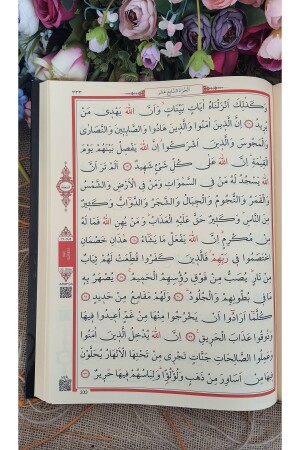 ٣٣٣
اَلْجُزْءُ السَّابِعَ عَشَرَ
وَكَذٰلِكَ اَنْزَلْنَاهُ اٰيَاتٍ بَيِّنَاتٍ وَاَنَّ اللّٰهَ يَهْدٖي مَنْ
يُرٖيدُ ﴿١٦﴾ اِنَّ الَّذٖينَ اٰمَنُوا وَالَّذٖينَ هَادُوا وَالصَّابِـٖٔينَ وَالنَّصَارٰى
وَالْمَجُوسَ وَالَّذٖينَ اَشْرَكُٓوا اِنَّ اللّٰهَ يَفْصِلُ بَيْنَهُمْ يَوْمَ
الْقِيٰمَةِ اِنَّ اللّٰهَ عَلٰى كُلِّ شَيْءٍ شَهٖيدٌ ﴿١٧﴾ اَلَمْ تَرَ اَنَّ
اللّٰهَ يَسْجُدُ لَهُ مَنْ فِي السَّمٰوَاتِ وَمَنْ فِي الْاَرْضِ وَالشَّمْسُ
وَالْقَمَرُ وَالنُّجُومُ وَالْجِبَالُ وَالشَّجَرُ وَالدَّوَٓابُّ وَكَثٖيرٌ
مِنَ النَّاسِ وَكَثٖيرٌ حَقَّ عَلَيْهِ الْعَذَابُ وَمَنْ يُهِنِ اللّٰهُ فَمَا لَهُ
مِنْ مُكْرِمٍ اِنَّ اللّٰهَ يَفْعَلُ مَا يَشَٓاءُ ﴿١٨﴾ هٰذَانِ خَصْمَانِ
اخْتَصَمُوا فٖي رَبِّهِمْ فَالَّذٖينَ كَفَرُوا قُطِّعَتْ لَهُمْ ثِيَابٌ
مِنْ نَارٍ يُصَبُّ مِنْ فَوْقِ رُؤُ۫سِهِمُ الْحَمٖيمُ ﴿١٩﴾ يُصْهَرُ بِهٖ
مَا فٖي بُطُونِهِمْ وَالْجُلُودُ ﴿٢٠﴾ وَلَهُمْ مَقَامِعُ مِنْ حَدٖيدٍ ﴿٢١﴾
كُلَّمَٓا اَرَادُٓوا اَنْ يَخْرُجُوا مِنْهَا مِنْ غَمٍّ اُعٖيدُوا فٖيهَا
وَذُوقُوا عَذَابَ الْحَرٖيقِ ﴿٢٢﴾ اِنَّ اللّٰهَ يُدْخِلُ الَّذٖينَ اٰمَنُوا
وَعَمِلُوا الصَّالِحَاتِ جَنَّاتٍ تَجْرٖي مِنْ تَحْتِهَا الْاَنْهَارُ يُحَلَّوْنَ
فٖيهَا مِنْ اَسَاوِرَ مِنْ ذَهَبٍ وَلُؤْلُؤًا وَلِبَاسُهُمْ فٖيهَا حَرٖيرٌ ﴿٢٣﴾
333